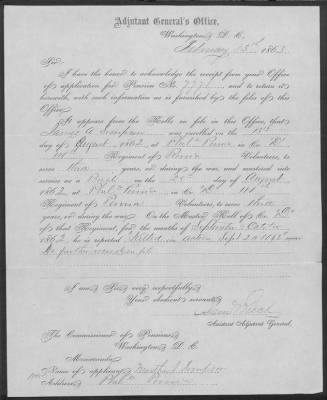 Adjutant General's Office,
Washington, D. C.
February 13th, 1863
Sir:
I have the honor to acknowledge the receipt from your Office
of application for Pension No. 7771, and to return it
herewith, with such information as is furnished by the files of this
Office.
It appears from the Rolls on file in this Office, that
James A. Simpson was enrolled on the
day of August 1862, at Phila Penna in Co.
111 Regiment of Penna Volunteers, to
serve three years, or during the war, and mustered into
service as a on the 25 day of August
1862, at Phila Penna in Co. 111
Regiment of Penna Volunteers, to serve three
years, or during the war. On the Muster Roll of Co.
of that Regiment, for the months of September & October
1862, he is reported Killed in action Sept 20 1862
No further record on file
I am, Sir, very respectfully,
Your obedient servant,
Assistant Adjutant General.
The Commissioner of Pensions,
Washington, D. C.
Memoranda:
Name of applicant, Simpson
Address, Phila Penna